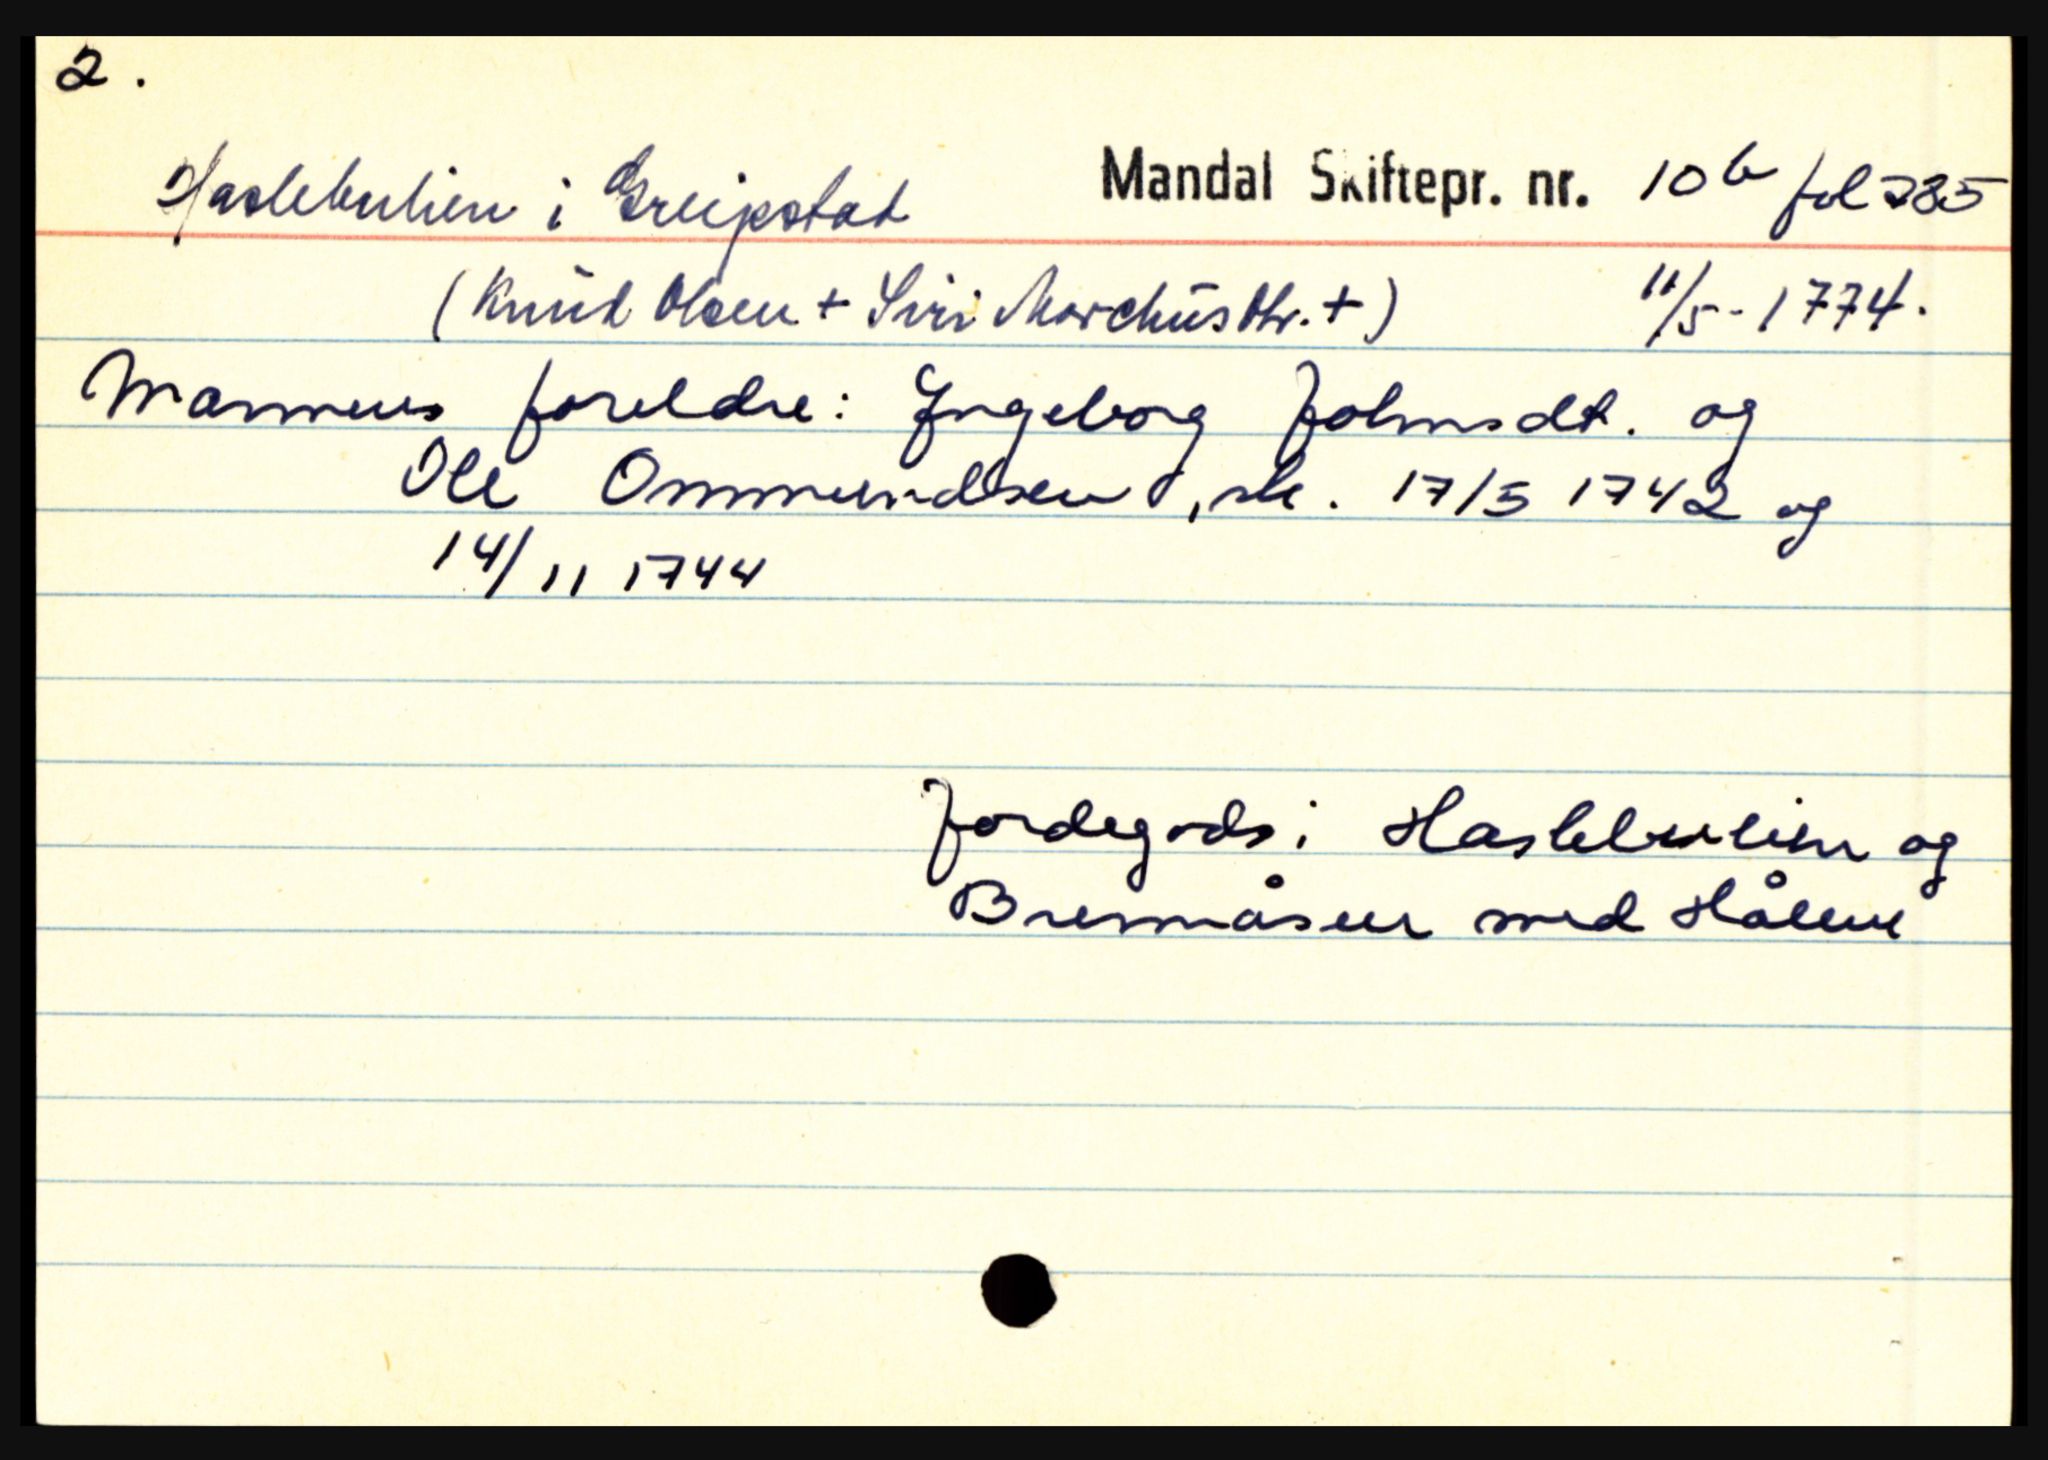 2.
Mandal Skiftepr. nr. 10b fol 785
Haslebulien i Greipstad
(Knud Olsen + Siri Marchusdtr. +) 11/5 - 1774.
Mannens foreldre: Ingeborg Johnsdt. og
Ole Ommundsen, sk. 17/5 1742 og
14/11 1744
Jordegods i Haslebulien og
Brennåsen med Hålene